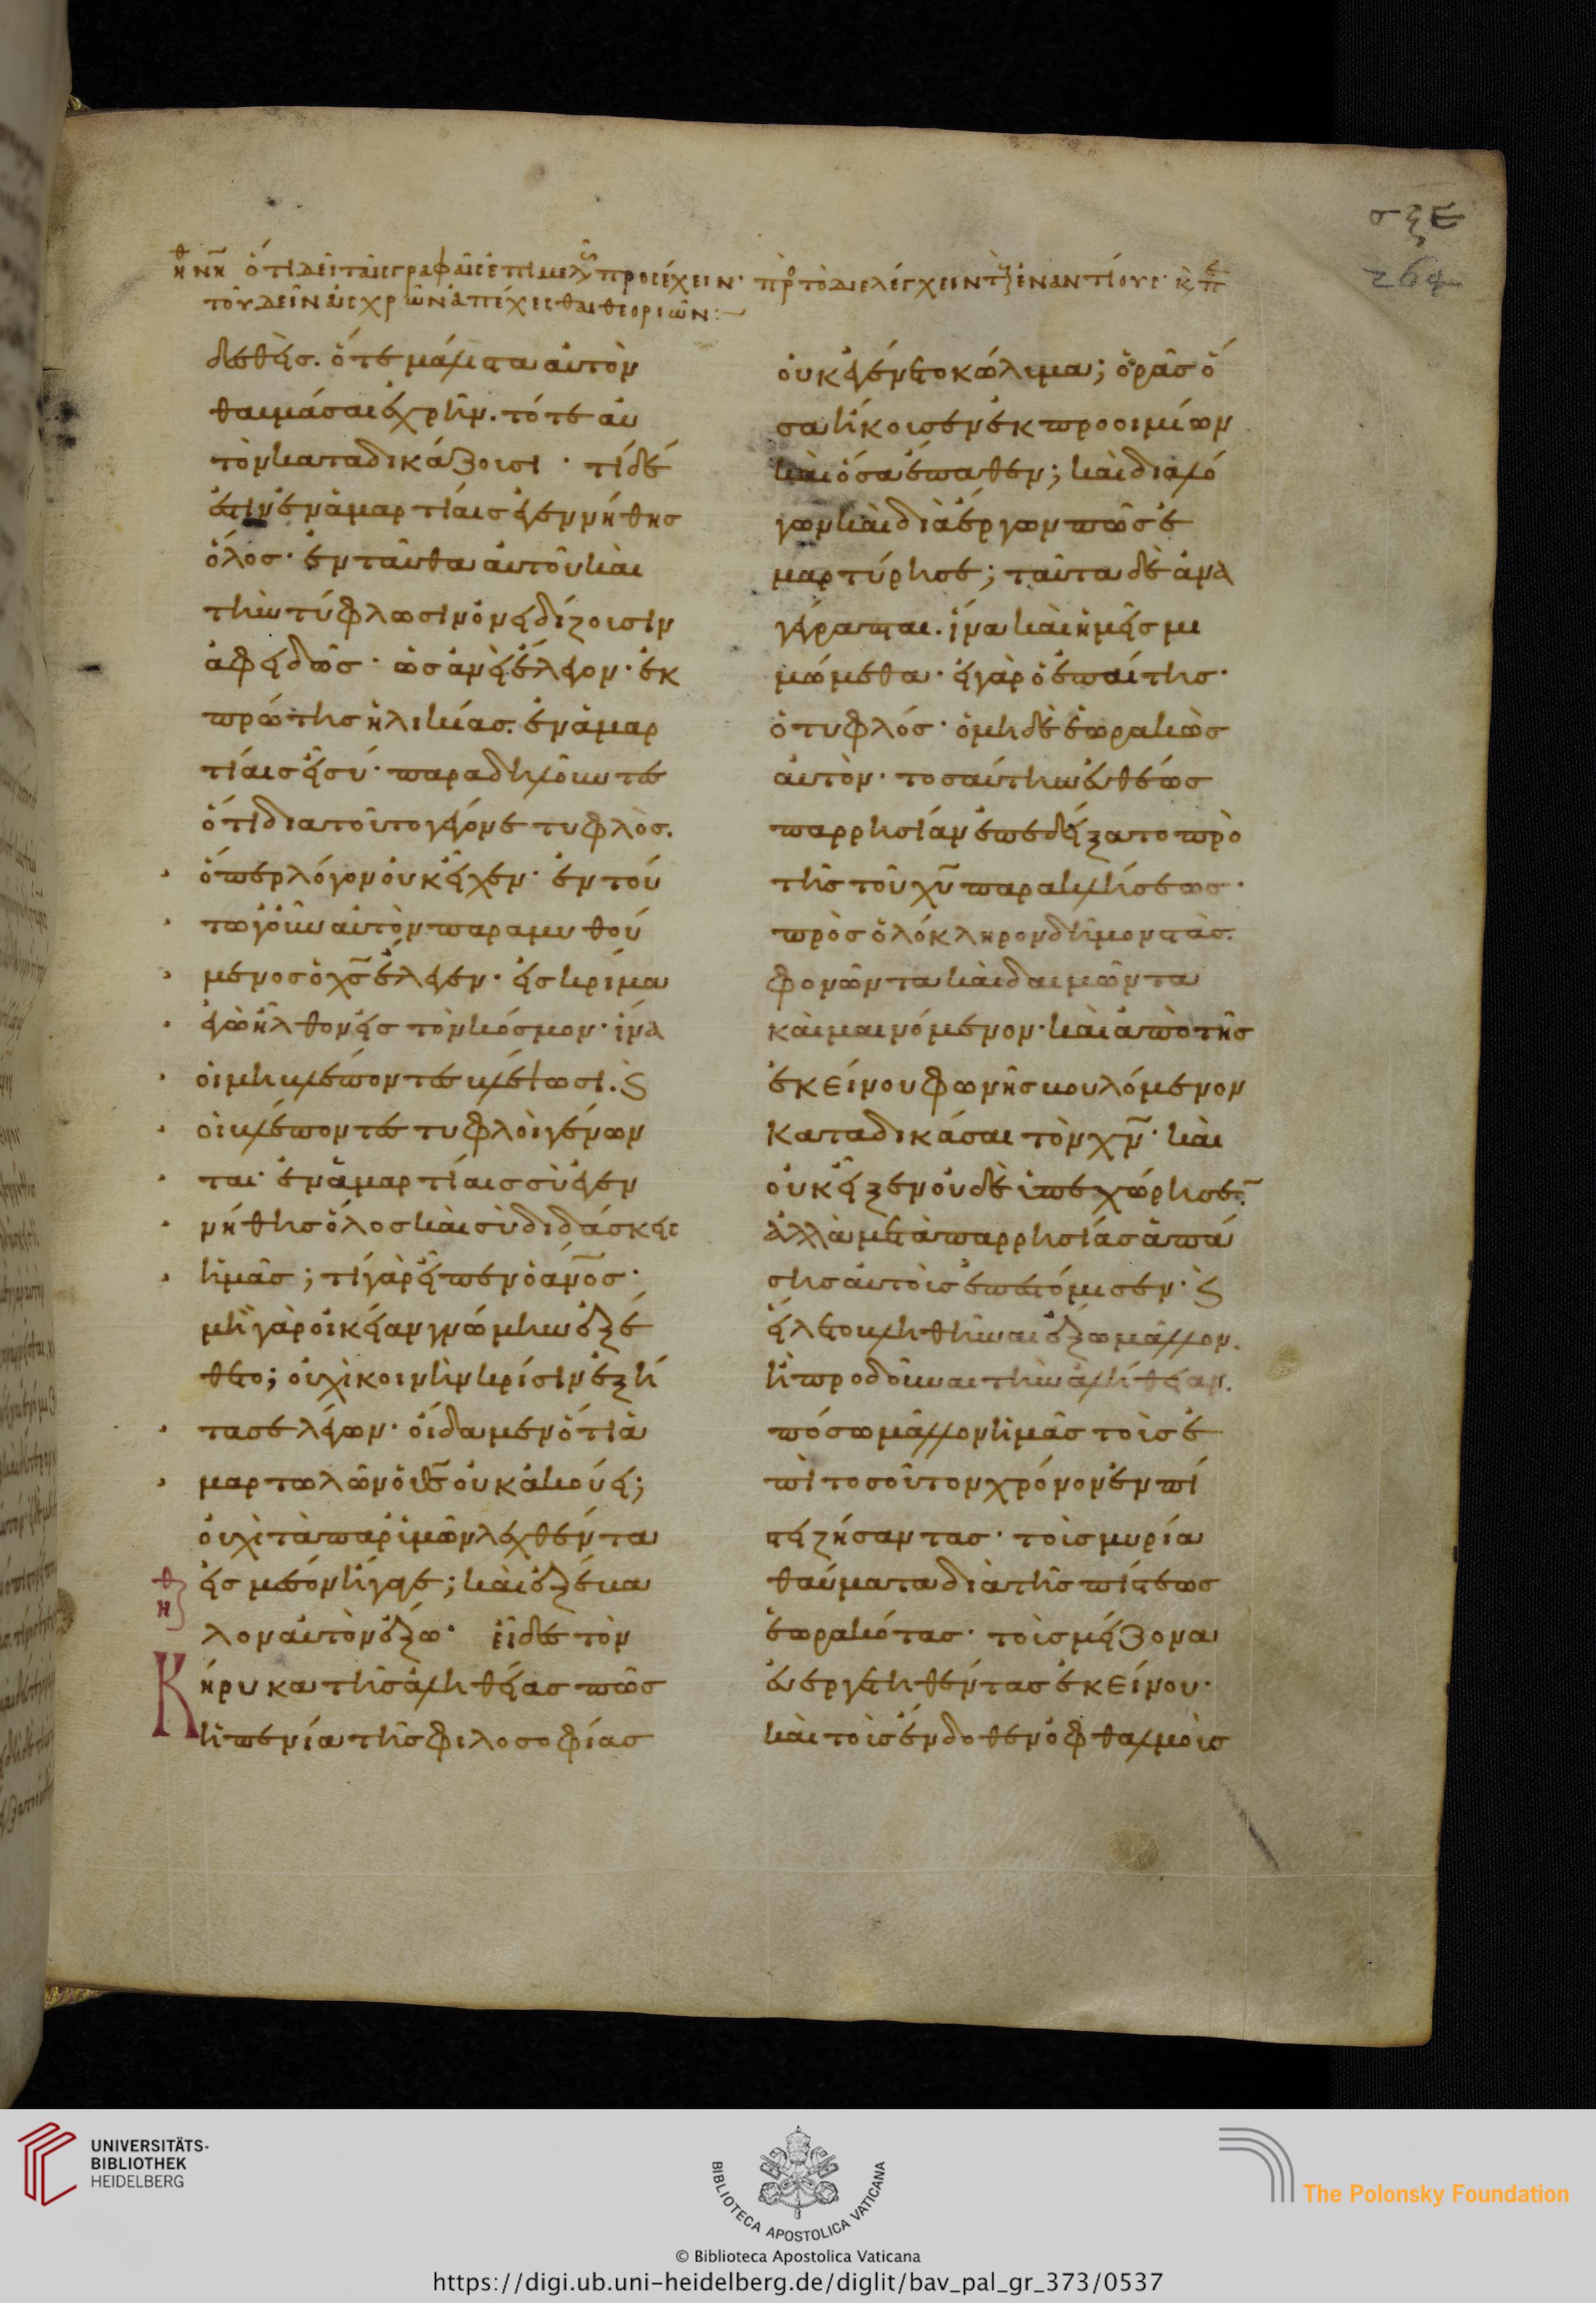 σξε
264
ὅτι δεῖ ταῖς γραφαῖς ἐπιμελῶς προσέχειν· πρὸς τὸ διελέγχειν τοὺς ἐναντίους·
τοῦ δεινῶν αἰσχρῶν ἀπέχεσθαι θεοριῶν:
δεθείς. ὅτε μάλιστα αὐτὸν
θαυμάσαι ἐχρῆν. τότε αὐ
τὸν καταδικάζουσι· τί δέ
ἐστιν ἐν ἁμαρτίαις ἐγεννήθης
ὅλος· ἐνταῦθα αὐτοῦ καὶ
τὴν τύφλωσιν ὀνειδίζουσιν
ἀφειδῶς· ὡσανεὶ ἔλεγον· ἐκ
πρώτης ἡλικίας. ἐν ἁμαρ
τίαις εἶ σύ· παραδηλοῦντες
ὅτι διατοῦτο γέγονε τυφλός.
ὅπερ λόγον οὐκ εἶχεν· ἐν τού
τω γοῦν αὐτὸν παραμυθού
μενος ὁ χς ἔλεγεν· εἰς κρίμα
ἐγὼ ἦλθον εἰς τὸν κόσμον· ἵνα
οἱ μὴ βλέποντες βλέπωσι. καὶ
οἱ βλέποντες τυφλοὶ γένων
ται· ἐν ἁμαρτίαις σὺ ἐγεν
νήθης ὅλος καὶ σὺ διδάσκεις
ἡμᾶς; τί γὰρ εἶπεν ὁ ανος·
μὴ γὰρ οἰκείαν γνώμην ἐξέ
θετο; οὐχὶ κοινὴν κρίσιν ἐξή
τασε λέγων· οἴδαμεν ὅτι ἁ
μαρτωλῶν ὁ θς οὐκ ἀκούει;
οὐχὶ τὰ παρ' ὑμῶν λεχθέντα
εἰς μέσον ἤγαγε; καὶ ἐξέβα
λον αὐτὸν ἔξω· εἶδες τὸν
Κήρυκα τῆς ἀληθείας πῶς
ἡ πενία τῆς φιλοσοφίας
οὐκ ἐγένετο κώλυμα; ὁρᾶς ὅ
σα ἤκουσεν ἐκ προοιμίων
καὶ ὅσα ἔπαθεν; καὶ διὰ λό
γων καὶ διὰ ἔργων πῶς ἐ
μαρτύρησε; ταῦτα δὲ ἀνα
γέγραπται. ἵνα καὶ ἡμεῖς μι
μώμεθα· εἰ γὰρ ὁ ἐπαίτης·
ὁ τυφλός· ὁ μηδὲ ἑωρακὼς
αὐτὸν· τοσαύτην εὐθέως
παρρησίαν ἐπεδείξατο πρὸ
τῆς τοῦ χυ παρακλήσεως·
πρὸς ὁλόκληρον δῆμον στάς.
φονῶντα καὶ δαιμῶντα
καὶ μαινόμενον· καὶ ἀπὸ τῆς
ἐκείνου φωνῆς βουλόμενον
καταδικάσαι τὸν χν· καὶ
οὐκ εἶξεν οὐδὲ ὑπεχώρησε·
ἀλλὰ μετὰ παρρησίας ἁπά
σης αὐτοὺς ἐπεστόμισεν· καὶ
εἵλετο βληθῆναι ἔξω μᾶλλον.
ἢ προδοῦναι τὴν ἀλήθειαν.
πόσω μᾶλλον ἡμᾶς τοὺς ἐ
πὶ τοσοῦτον χρόνον ἐν πί
στει ζήσαντας· τοὺς μυρία
θαύματα διὰ τῆς πίστεως
ἑωρακότας· τοὺς μείζονα
εὐεργετηθέντας ἐκείνου·
καὶ τοῖς ἔνδοθεν ὀφθαλμοῖς
UNIVERSITÄTS-
BIBLIOTHEK
HEIDELBERG
BIBLIOTECA APOSTOLICA VATICANA
The Polonsky Foundation
© Biblioteca Apostolica Vaticana
https://digi.ub.uni-heidelberg.de/diglit/bav_pal_gr_373/0537